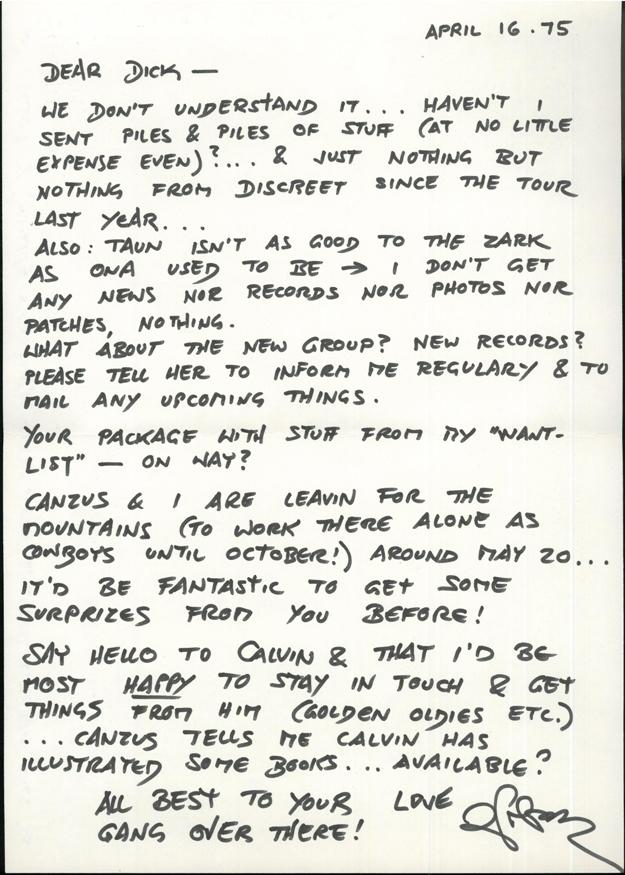 APRIL 16 . 75
DEAR DICK —
WE DON'T UNDERSTAND IT... HAVEN'T I
SENT PILES & PILES OF STUFF (AT NO LITTLE
EXPENSE EVEN)?... & JUST NOTHING BUT
NOTHING FROM DISCREET SINCE THE TOUR
LAST YEAR...
ALSO: TAUN ISN'T AS GOOD TO THE ZARK
AS ONA USED TO BE → I DON'T GET
ANY NEWS NOR RECORDS NOR PHOTOS NOR
PATCHES, NOTHING.
WHAT ABOUT THE NEW GROUP? NEW RECORDS?
PLEASE TELL HER TO INFORM ME REGULARY & TO
MAIL ANY UPCOMING THINGS.
YOUR PACKAGE WITH STUFF FROM MY "WANT-
LIST" — ON WAY?
CANZUS & I ARE LEAVIN FOR THE
MOUNTAINS (TO WORK THERE ALONE AS
COWBOYS UNTIL OCTOBER!) AROUND MAY 20...
IT'D BE FANTASTIC TO GET SOME
SURPRIZES FROM YOU BEFORE!
SAY HELLO TO CALVIN & THAT I'D BE
MOST HAPPY TO STAY IN TOUCH & GET
THINGS FROM HIM (GOLDEN OLDIES ETC.)
... CANZUS TELLS ME CALVIN HAS
ILLUSTRATED SOME BOOKS... AVAILABLE?
ALL BEST TO YOUR LOVE
GANG OVER THERE!